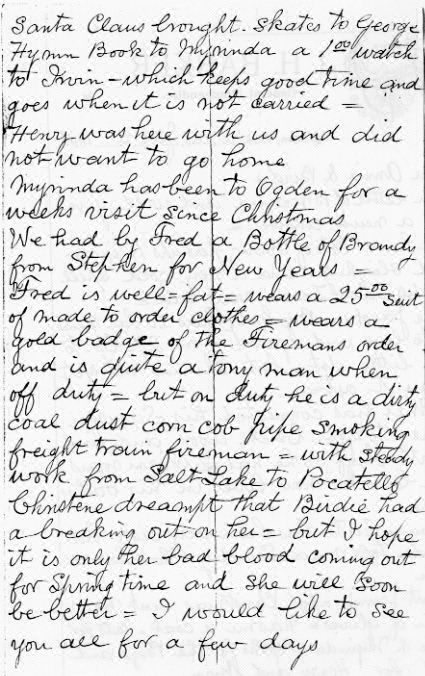 Santa Claus brought. Skates to George
Hymn Book to Myrinda a 1.00 watch
to Irvin - which keeps good time and
goes when it is not carried =
Henry was here with us and did
not want to go home
Myrinda has been to Ogden for a
weeks visit since Christmas
We had by Fred a Bottle of Brandy
from Stephen for New Years =
Fred is well = fat = wears a 25.00 Suit
of made to order clothes = wears a
gold badge of the Firemans order
and is quite a tony man when
off duty = but on duty he is a dirty
coal dust corn cob pipe smoking
freight train fireman = with steady
work from Salt Lake to Pocatello
Christene dreampt that Birdie had
a breaking out on her = but I hope
it is only her bad blood coming out
for Spring time and she will soon
be better = I would like to see
you all for a few days